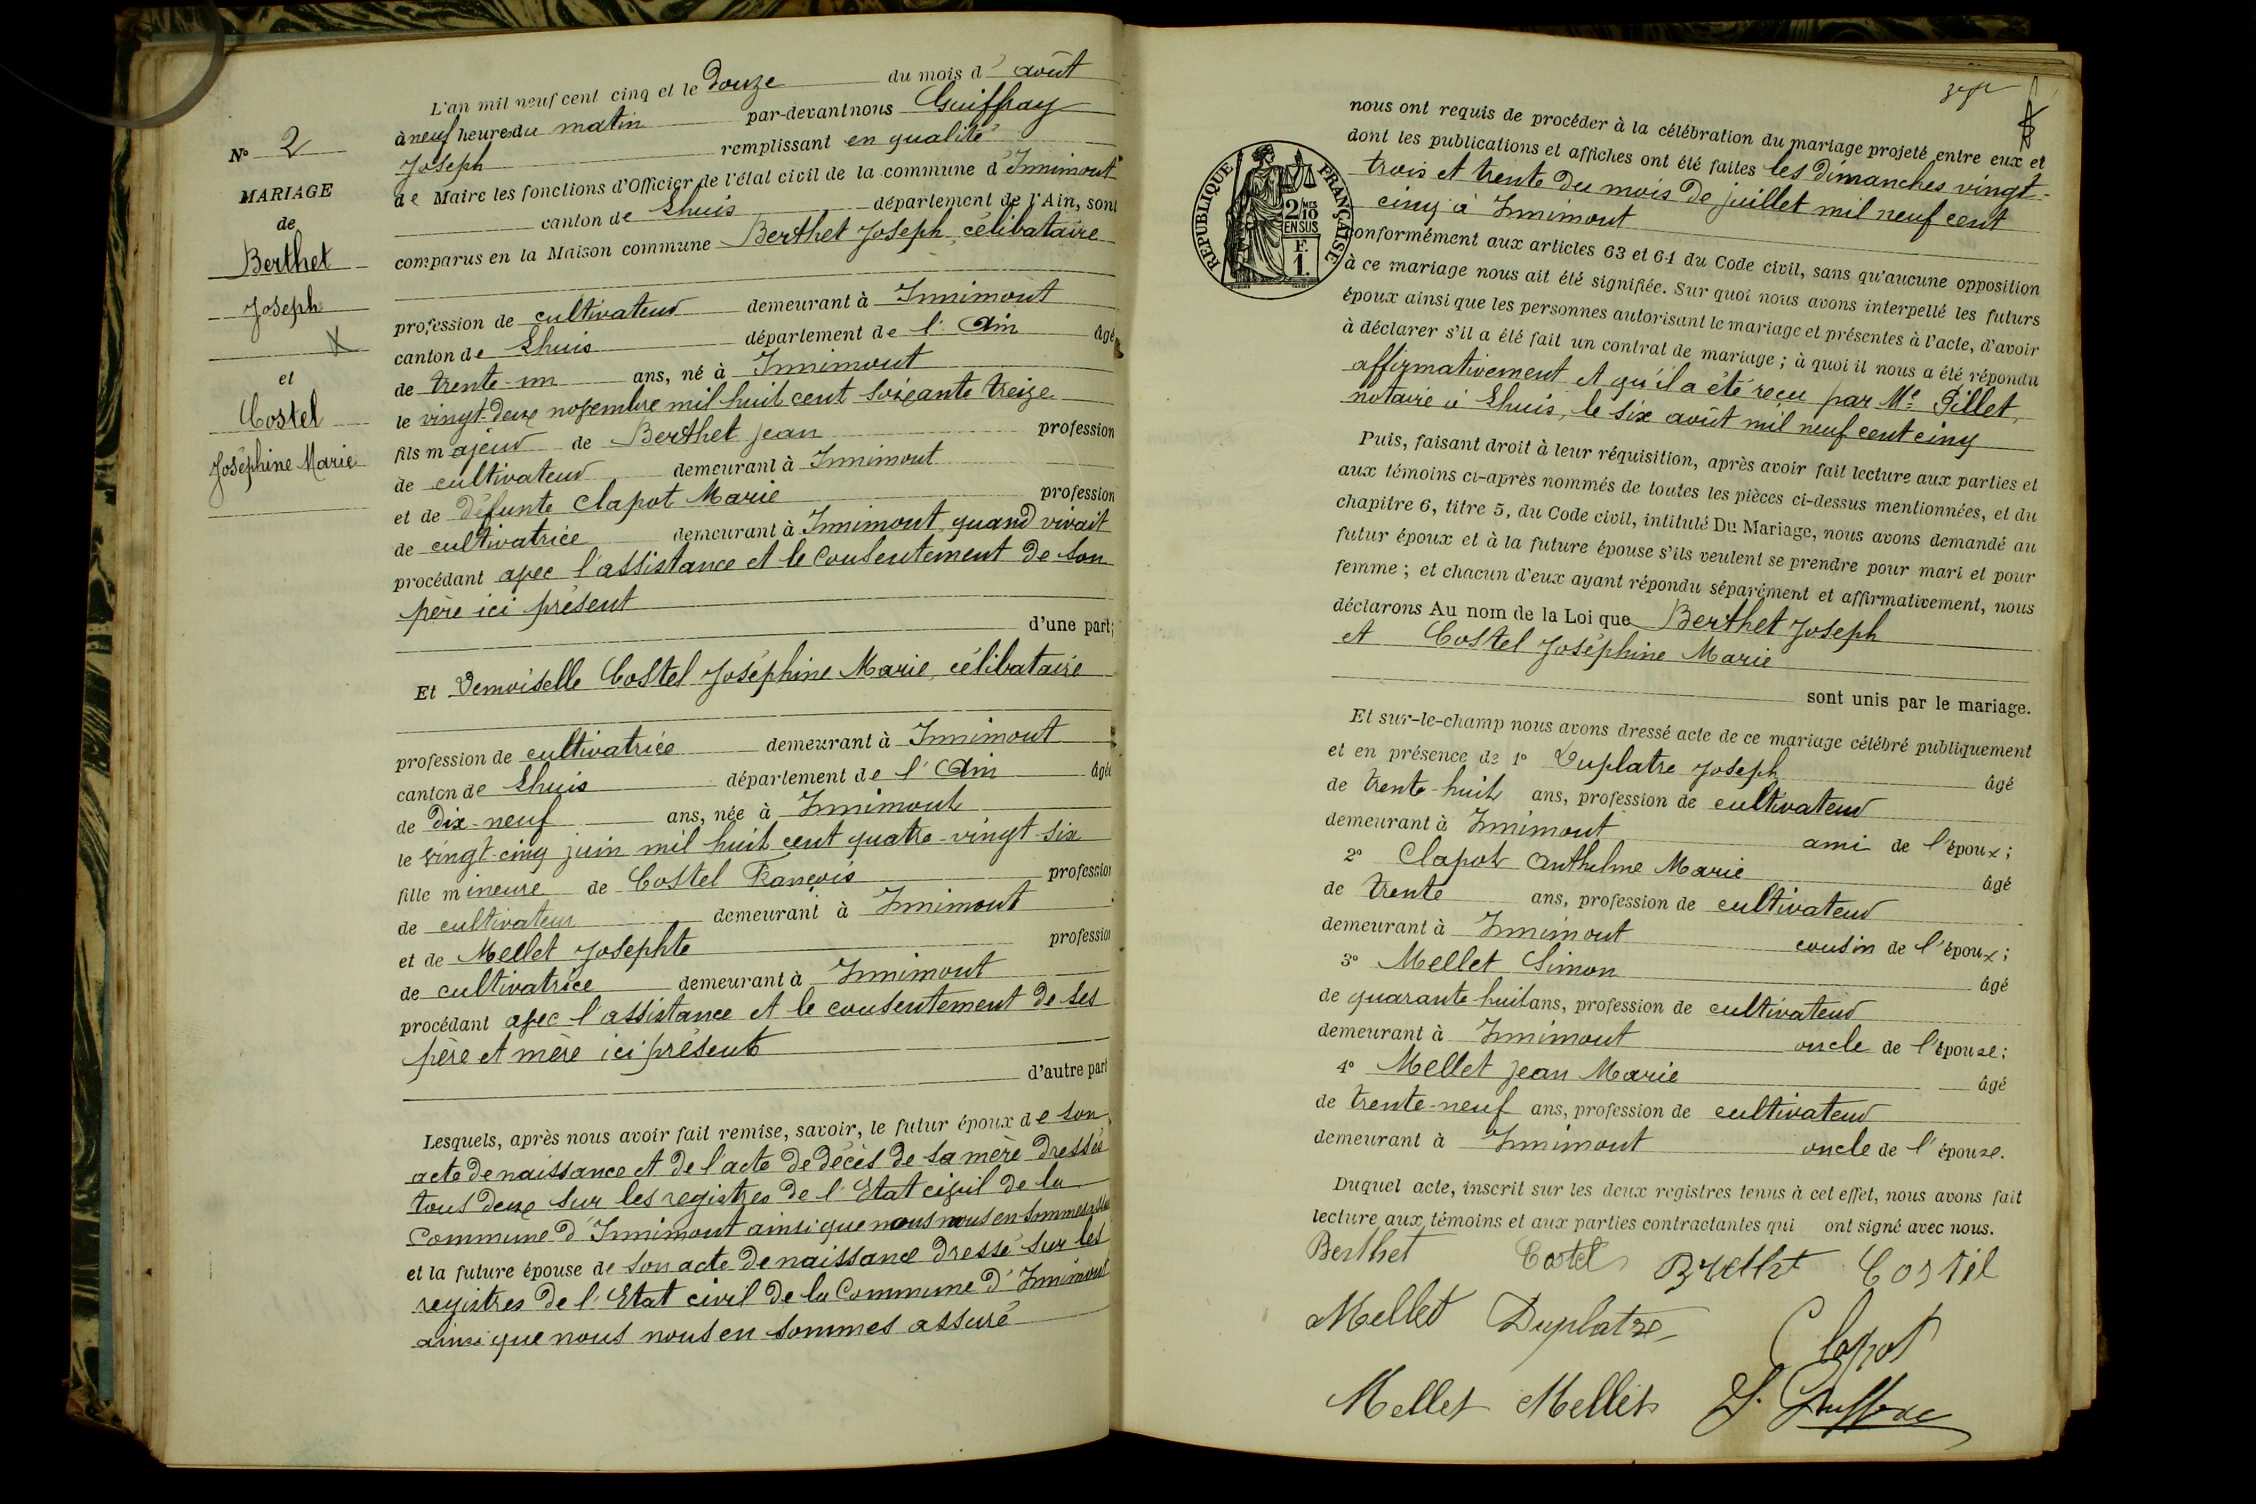 L'an mil neuf cent cinq et le Douze du mois d' août
à neuf heures du matin par-devant nous Guiffray
Joseph remplissant en qualité
de Maire les fonctions d'Officier de l'état civil de la commune d'Innimont
canton de Lhuis département de l'Ain, sont
comparus en la Maison commune Berthet Joseph, célibataire
profession de cultivateur demeurant à Innimont
canton de Lhuis département de l' Ain âgé
de trente-un ans, né à Innimont
le vingt-deux novembre mil huit cent soixante treize
fils majeur de Berthet Jean profession
de cultivateur demeurant à Innimont
et de défunte Clapot Marie profession
de cultivatrice demeurant à Innimont quand vivait
procédant avec l'assistance et le consentement de son
père ici présent
d'une part;
Et Demoiselle Costel Joséphine Marie, célibataire
profession de cultivatrice demeurant à Innimont
canton de Lhuis département de l' Ain âgée
de Dix-neuf ans, née à Innimont
le vingt-cinq juin mil huit cent quatre-vingt-six
fille mineure de Costel François profession
de cultivateur demeurant à Innimont
et de Mellet Josephte profession
de cultivatrice demeurant à Innimont
procédant avec l'assistance et le consentement de ses
père et mère ici présents
d'autre part
Lesquels, après nous avoir fait remise, savoir, le futur époux de son
acte de naissance et de l'acte de décès de sa mère dressés
tous deux sur les registres de l'Etat civil de la
Commune d'Innimont ainsi que nous nous en sommes
et la future épouse de son acte de naissance dressé sur les
registres de l'Etat civil de la Commune d'Innimont
ainsi que nous nous en sommes assuré
N° 2
MARIAGE
de
Berthet
Joseph
et
Costel
Joséphine Marie
RÉPUBLIQUE FRANÇAISE
2/MES
10
EN SUS
F.
1.
nous ont requis de procéder à la célébration du mariage projeté entre eux et
dont les publications et affiches ont été faites les dimanches vingt-
trois et trente du mois de juillet mil neuf cent
cinq à Innimont
conformément aux articles 63 et 64 du Code civil, sans qu'aucune opposition
à ce mariage nous ait été signifiée. Sur quoi nous avons interpellé les futurs
époux ainsi que les personnes autorisant le mariage et présentes à l'acte, d'avoir
à déclarer s'il a été fait un contrat de mariage ; à quoi il nous a été répondu
affirmativement et qu'il a été reçu par Me Pillet,
notaire à Lhuis, le six août mil neuf cent cinq
Puis, faisant droit à leur réquisition, après avoir fait lecture aux parties et
aux témoins ci-après nommés de toutes les pièces ci-dessus mentionnées, et du
chapitre 6, titre 5, du Code civil, intitulé Du Mariage, nous avons demandé au
futur époux et à la future épouse s'ils veulent se prendre pour mari et pour
femme ; et chacun d'eux ayant répondu séparément et affirmativement, nous
déclarons Au nom de la Loi que Berthet Joseph
et Costel Joséphine Marie
sont unis par le mariage.
Et sur-le-champ nous avons dressé acte de ce mariage célébré publiquement
et en présence de 1° Duplatre Joseph âgé
de trente-huit ans, profession de cultivateur
demeurant à Innimont ami de l'époux ;
2° Clapot Anthelme Marie âgé
de trente ans, profession de cultivateur
demeurant à Innimont cousin de l'époux ;
3° Mellet Simon âgé
de quarante huit ans, profession de cultivateur
demeurant à Innimont oncle de l'épouse ;
4° Mellet Jean Marie âgé
de trente-neuf ans, profession de cultivateur
demeurant à Innimont oncle de l'épouse.
Duquel acte, inscrit sur les deux registres tenus à cet effet, nous avons fait
lecture aux témoins et aux parties contractantes qui ont signé avec nous.
Berthet Costel Berthet Costel
Mellet Duplatre Clapot
Mellet Mellet J. Guiffray